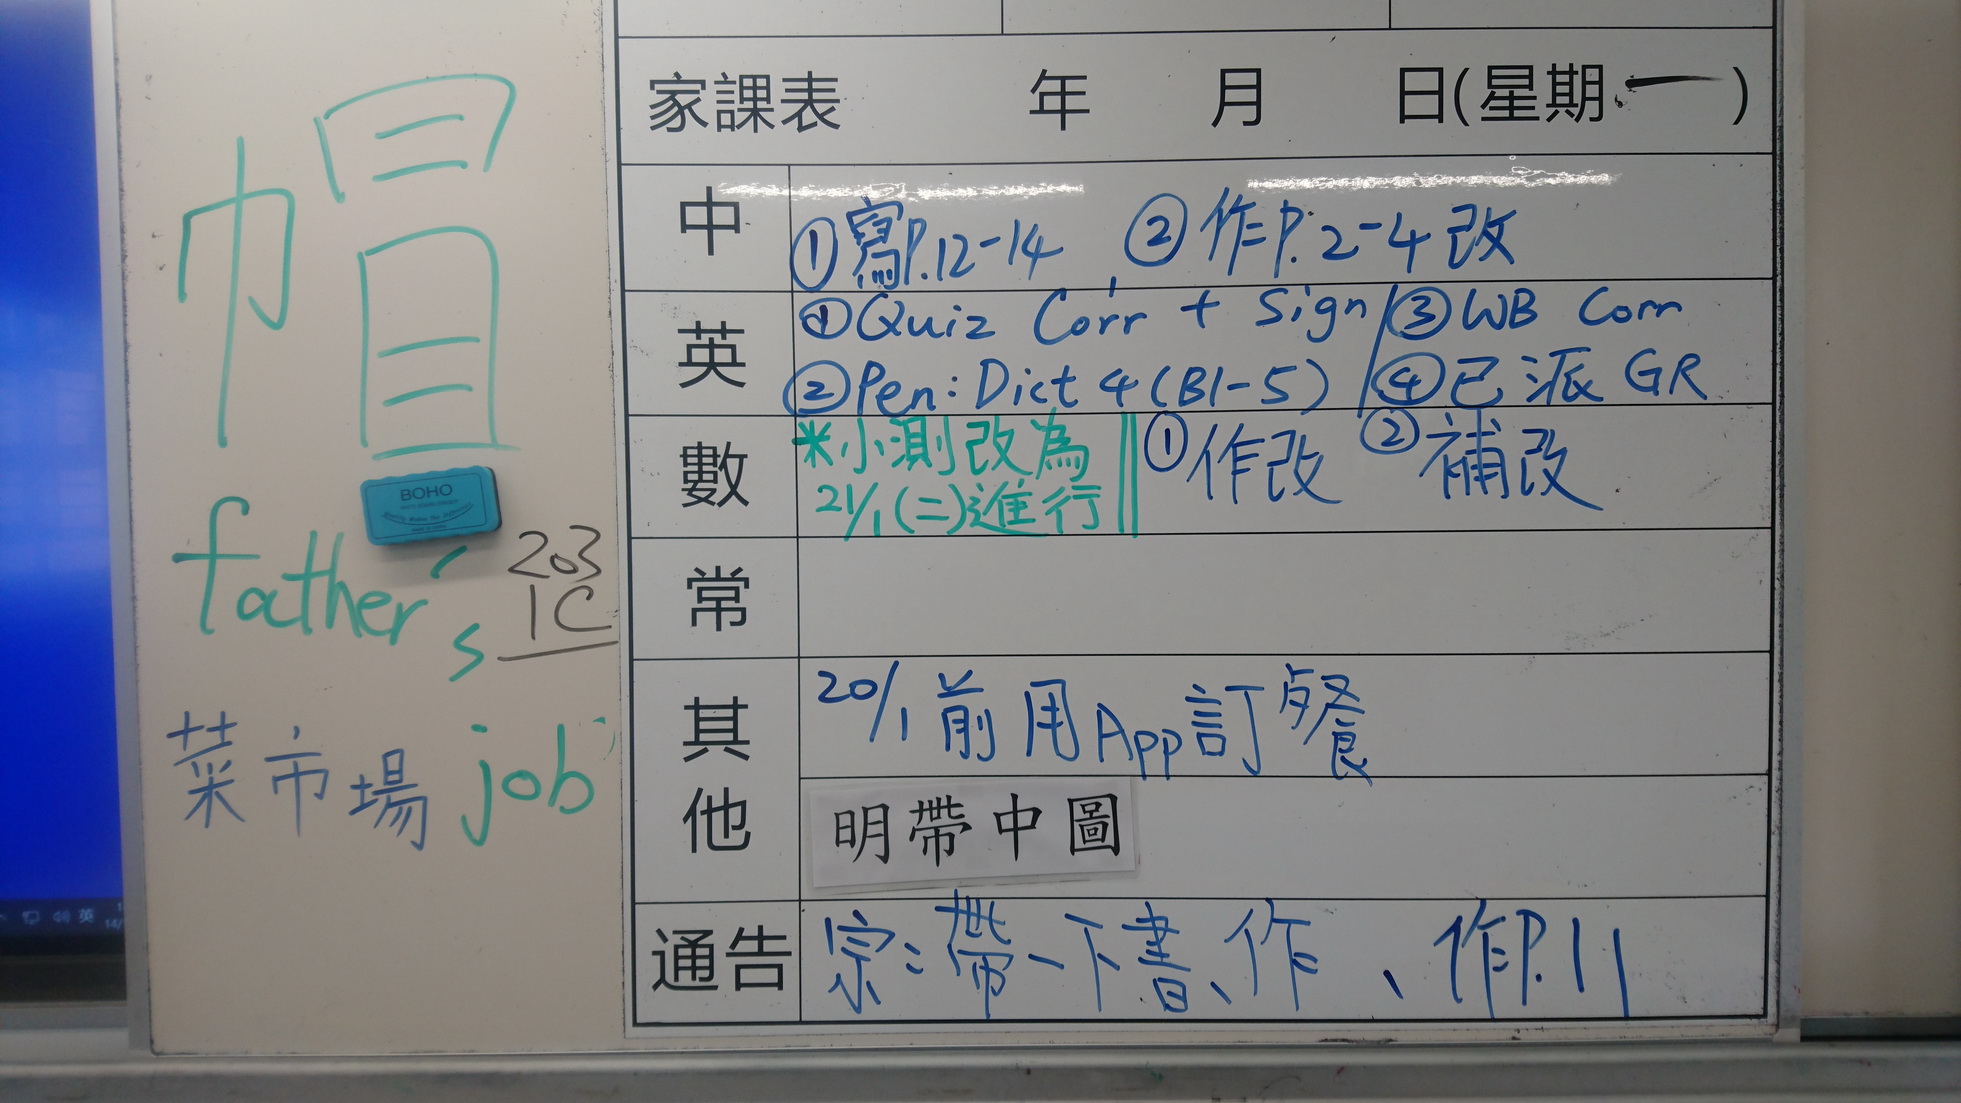 帽
BOHO
father's
203
1C
菜市場 job
家課表 年 月 日(星期一)
中 ①寫P.12-14 ②作P.2-4改
英 ①Quiz Corr + Sign ③WB Corr
②Pen: Dict 4 (B1-5) ④已派 GR
數 *小測改為 ①作改 ②補改
21/1(二)進行
常
其他 20/1前用App訂餐
明帶中圖
通告 宗:帶一下書、作、作P.11
英